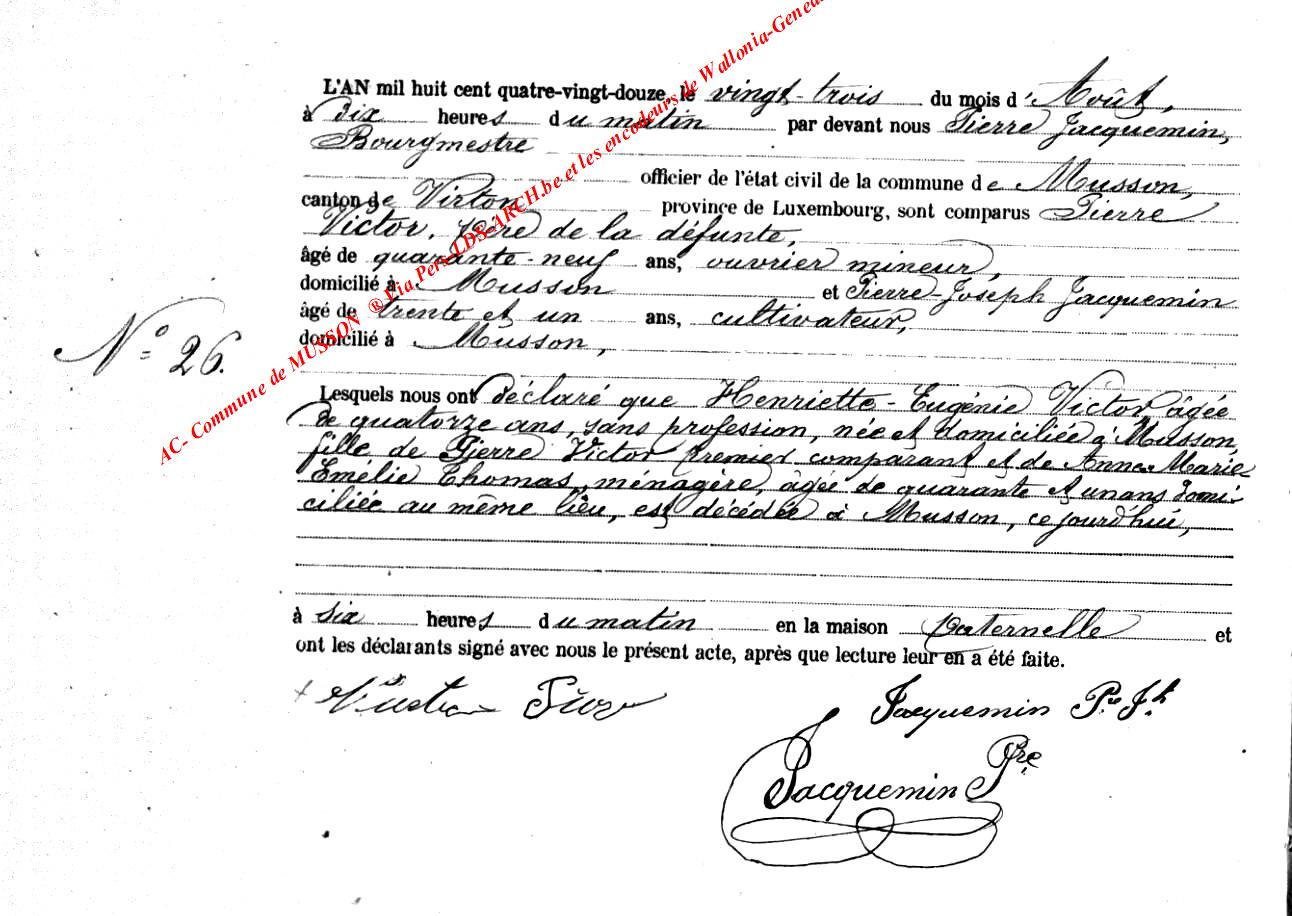 L'AN mil huit cent quatre-vingt-douze, le vingt-trois du mois d'Août,
à dix heures du matin par devant nous Pierre Jacquemin,
Bourgmestre
officier de l'état civil de la commune de Musson,
canton de Virton province de Luxembourg, sont comparus Pierre
Victor, père de la défunte,
âgé de quarante-neuf ans, ouvrier mineur,
domicilié à Musson et Pierre-Joseph Jacquemin
âgé de trente et un ans, cultivateur,
domicilié à Musson,
N° 26.
Lesquels nous ont déclaré que Henriette-Eugénie Victor âgée
de quatorze ans, sans profession, née et domiciliée à Musson,
fille de Pierre Victor premier comparant et de Anne Marie
Emélie Thomas, ménagère, âgée de quarante et un ans domi-
ciliée au même lieu, est décédée à Musson, ce jourd'hui,
à six heures du matin en la maison paternelle et
ont les déclarants signé avec nous le présent acte, après que lecture leur en a été faite.
Jacquemin Pre Jh
Jacquemin Pre
AC- Commune de MUSSON ® Via Pers LDS-ARCH.be et les encodeurs de Wallonia-Genea